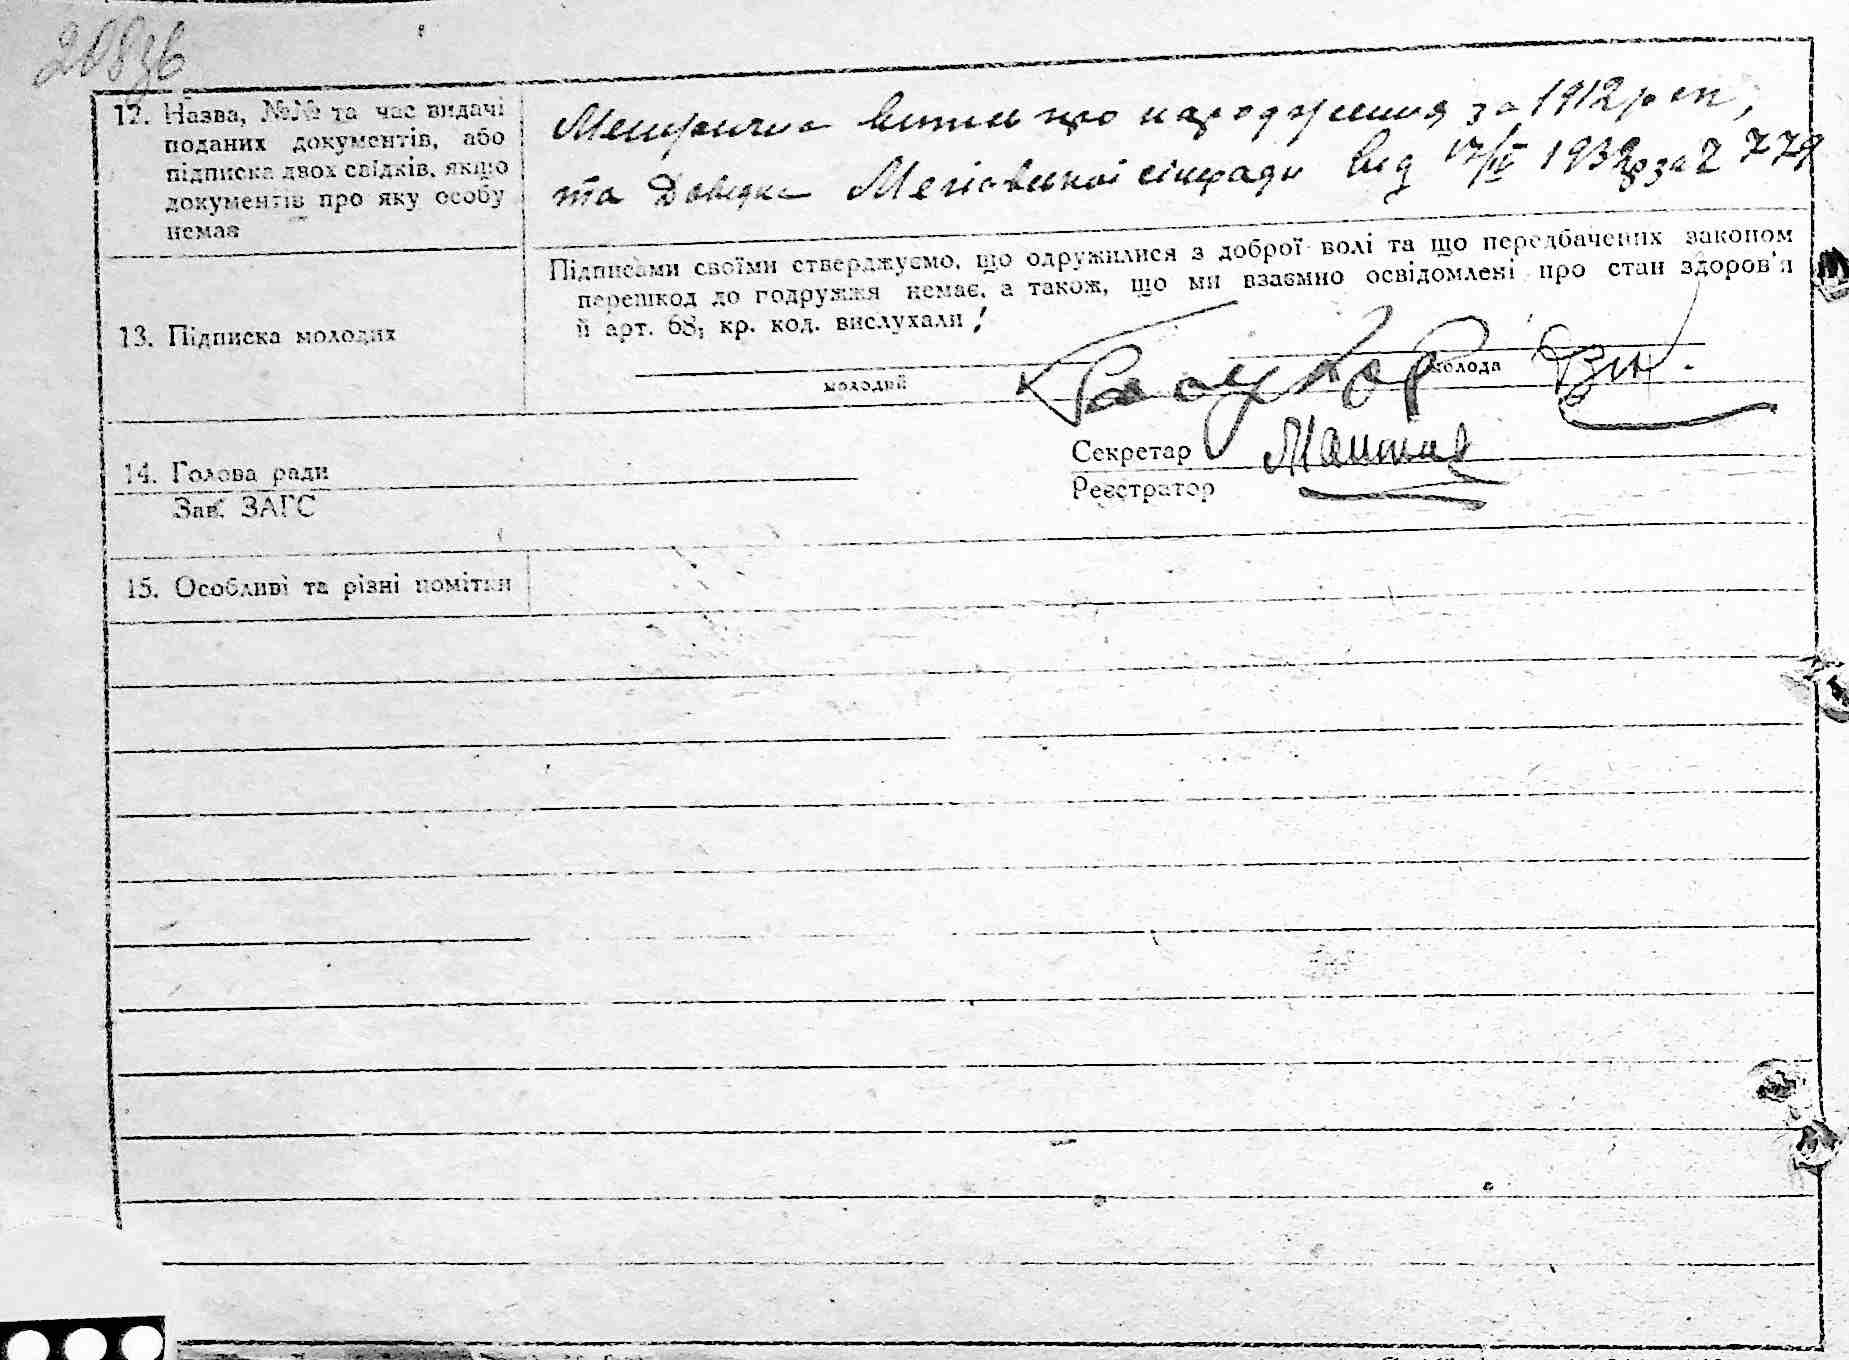 208зв
12. Назва, №№ та час видачі
поданих документів, або
підписка двох свідків, якщо
документів про яку особу
немає
Метрична витяг про народження за 1912 рік,
та Довідка сільради від 17/IV 193 за № 779
13. Підписка молодих
Підписами своїми стверджуємо, що одружилися з доброї волі та що передбачених законом
перешкод до подружжя немає, а також, що ми взаємно освідомлені про стан здоров'я
й арт. 68, кр. код. вислухали!
молодий
молода
14. Голова ради
Зав. ЗАГС
Секретар
Реєстратор
15. Особливі та різні помітки